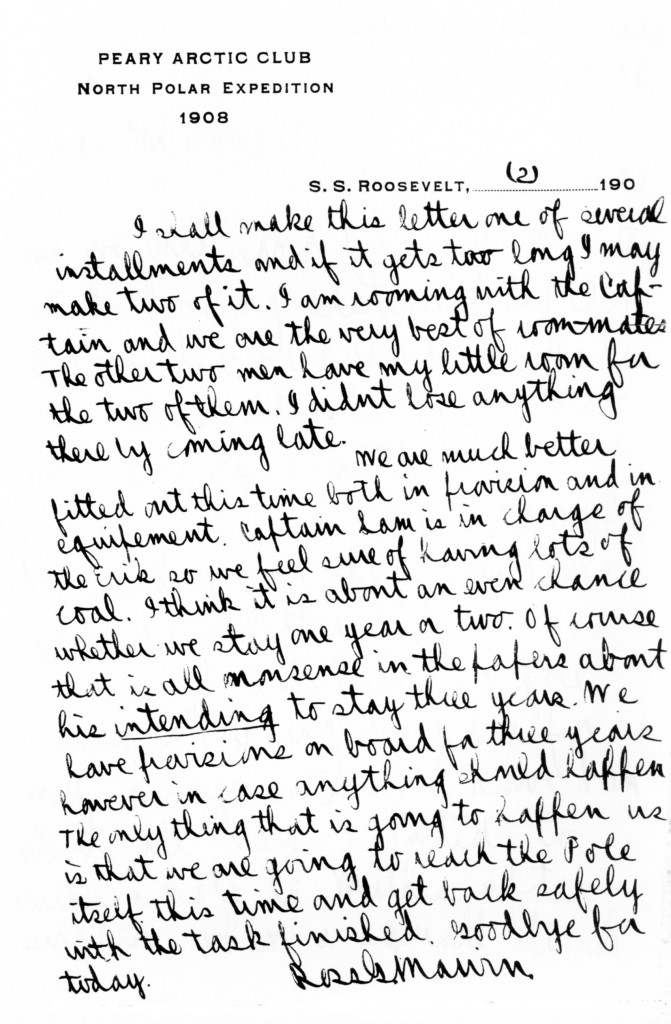 PEARY ARCTIC CLUB
NORTH POLAR EXPEDITION
1908
S. S. ROOSEVELT, (2) 190
I shall make this letter one of several
installments and if it gets too long I may
make two of it. I am rooming with the Cap-
tain and we are the very best of room-mates
The other two men have my little room for
the two of them. I didnt lose anything
there by coming late.
We are much better
fitted out this time both in provision and in
equipement. Captain Sam is in charge of
the Erik so we feel sure of having lots of
coal. I think it is about an even chance
whether we stay one year or two. Of course
that is all nonsense in the papers about
his intending to stay three years. We
have provisions on board for three years
however in case anything should happen
The only thing that is going to happen us
is that we are going to reach the Pole
itself this time and get back safely
with the task finished. Goodbye for
today. Ross G. Marvin.